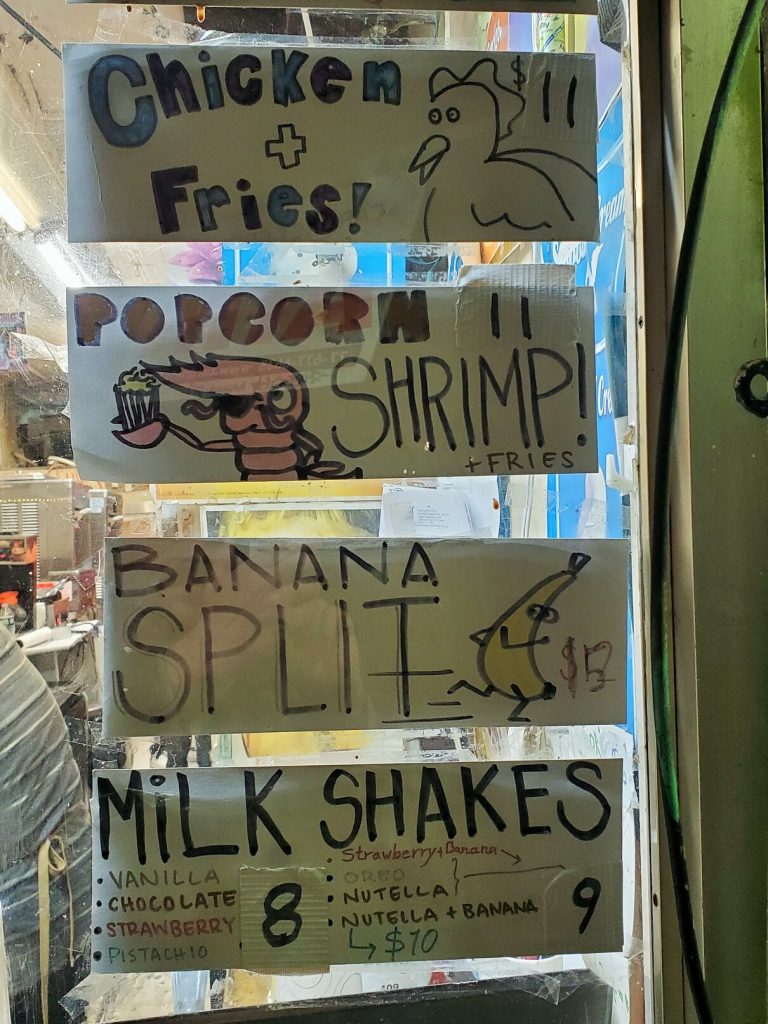 Chicken $11
+
Fries!
POPCORN 11
SHRIMP!
+ FRIES
BANANA
SPLIT
MiLK SHAKES
• VANILLA
• CHOCOLATE
• STRAWBERRY
• PISTACHIO
8
• Strawberry+Banana →
• OREO
• NUTELLA
• NUTELLA + BANANA
↳ $10
9